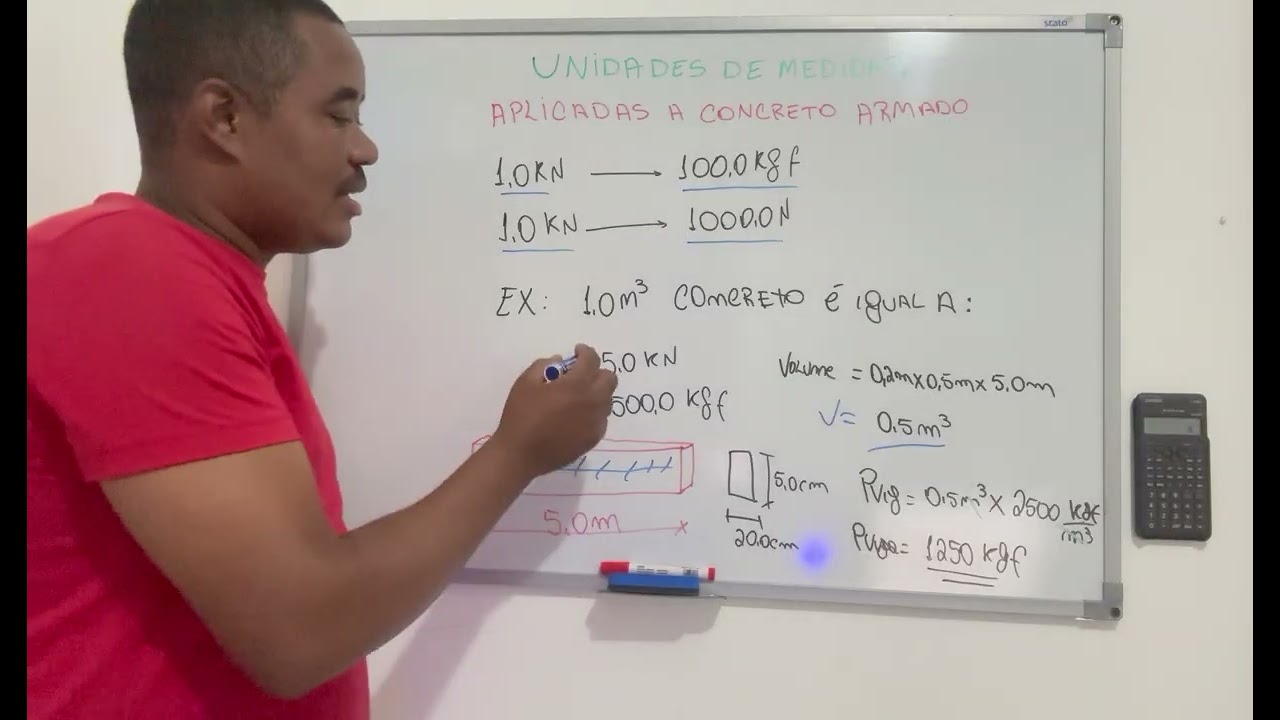 stalo
UNIDADES DE MEDIDAS.
APLICADAS A CONCRETO ARMADO
1,0KN → 100,0 kgf
1,0 KN → 1000,0N
EX: 1,0m³ COmCRETO É IGUAL A:
5,0 KN
500,0 Kgf
VOLUME = 0,2m x 0,5m x 5,0m
V= 0.5m³
5,0m
5,0cm
20,0cm
PVig = 0.5m³ X 2500 kgf/m³
PViga = 1250 kgf